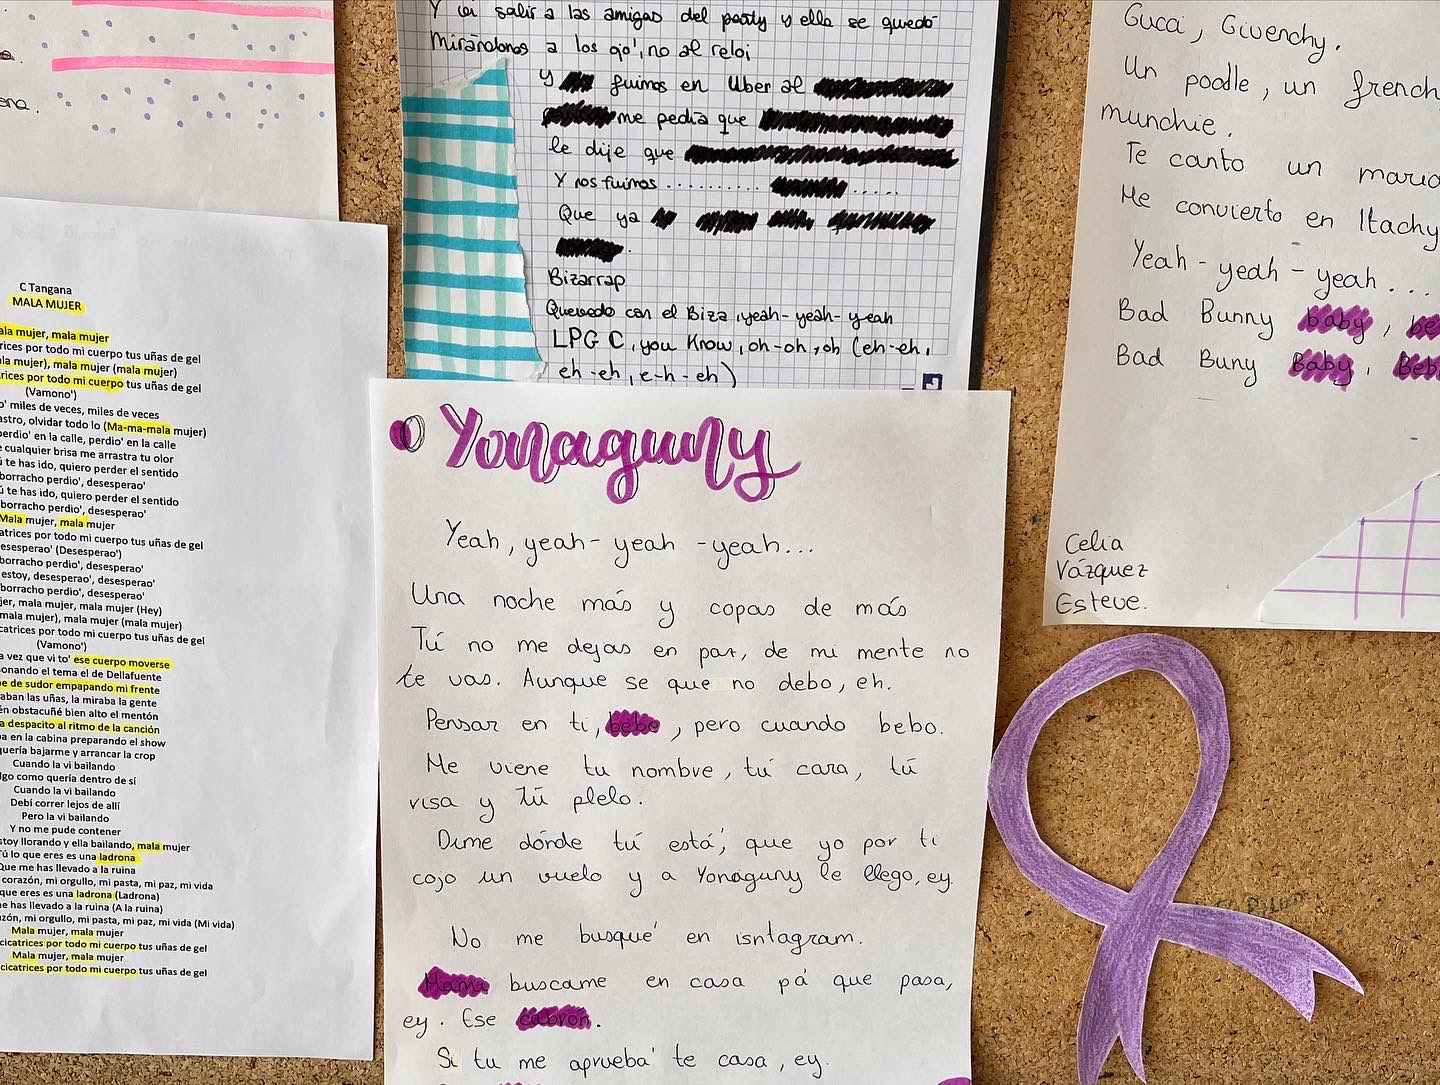 ena.
C Tangana
MALA MUJER
ala mujer, mala mujer
rices por todo mi cuerpo tus uñas de gel
la mujer), mala mujer (mala mujer)
rices por todo mi cuerpo tus uñas de gel
(Vamono')
o' miles de veces, miles de veces
astro, olvidar todo lo (Ma-ma-mala mujer)
perdio' en la calle, perdio' en la calle
e cualquier brisa me arrastra tu olor
ú te has ido, quiero perder el sentido
borracho perdio', desesperao'
ú te has ido, quiero perder el sentido
borracho perdio', desesperao'
Mala mujer, mala mujer
atrices por todo mi cuerpo tus uñas de gel
esesperao' (Desesperao')
borracho perdio', desesperao'
estoy, desesperao', desesperao'
borracho perdio', desesperao'
jer, mala mujer, mala mujer (Hey)
mala mujer), mala mujer (mala mujer)
catrices por todo mi cuerpo tus uñas de gel
(Vamono')
a vez que vi to' ese cuerpo moverse
onando el tema el de Dellafuente
e de sudor empapando mi frente
raban las uñas, la miraba la gente
én obstacuñé bien alto el mentón
a despacito al ritmo de la canción
ba en la cabina preparando el show
quería bajarme y arrancar la crop
Cuando la vi bailando
lgo como quería dentro de sí
Cuando la vi bailando
Debí correr lejos de allí
Pero la vi bailando
Y no me pude contener
stoy llorando y ella bailando, mala mujer
Tú lo que eres es una ladrona
Que me has llevado a la ruina
corazón, mi orgullo, mi pasta, mi paz, mi vida
que eres es una ladrona (Ladrona)
e has llevado a la ruina (A la ruina)
azón, mi orgullo, mi pasta, mi paz, mi vida (Mi vida)
Mala mujer, mala mujer
cicatrices por todo mi cuerpo tus uñas de gel
Mala mujer, mala mujer
cicatrices por todo mi cuerpo tus uñas de gel
Y vi salir a las amigas del party y ella se quedó
Mirándonos a los ojo', no al reloj
Y fuimos en Uber al
me pedía que
le dije que
Y nos fuimos .......... .....
Que ya
Bizarrap
Quevedo con el Biza, yeah-yeah-yeah
LPG C, you know, oh-oh, oh (eh-eh,
eh-eh, e-h-eh)
Yonaguny
Yeah, yeah-yeah-yeah...
Una noche más y copas de más
Tú no me dejas en par, de mi mente no
te vas. Aunque se que no debo, eh.
Pensar en ti, bebe, pero cuando bebo.
Me viene tu nombre, tú cara, tú
risa y tú plelo.
Dime dónde tú está', que yo por ti
cojo un vuelo y a Yonaguny le llego, ey.
No me busqué en isntagram.
Mami buscame en casa pá que pasa,
ey. Ese cabrón.
Si tu me aprueba' te casa, ey.
Gucci, Givenchy.
Un poodle, un french
munchie.
Te canto un maria
Me convierto en Itachy
Yeah-yeah-yeah...
Bad Bunny baby, be
Bad Buny Baby, Beb
Celia
Vázquez
Esteve.